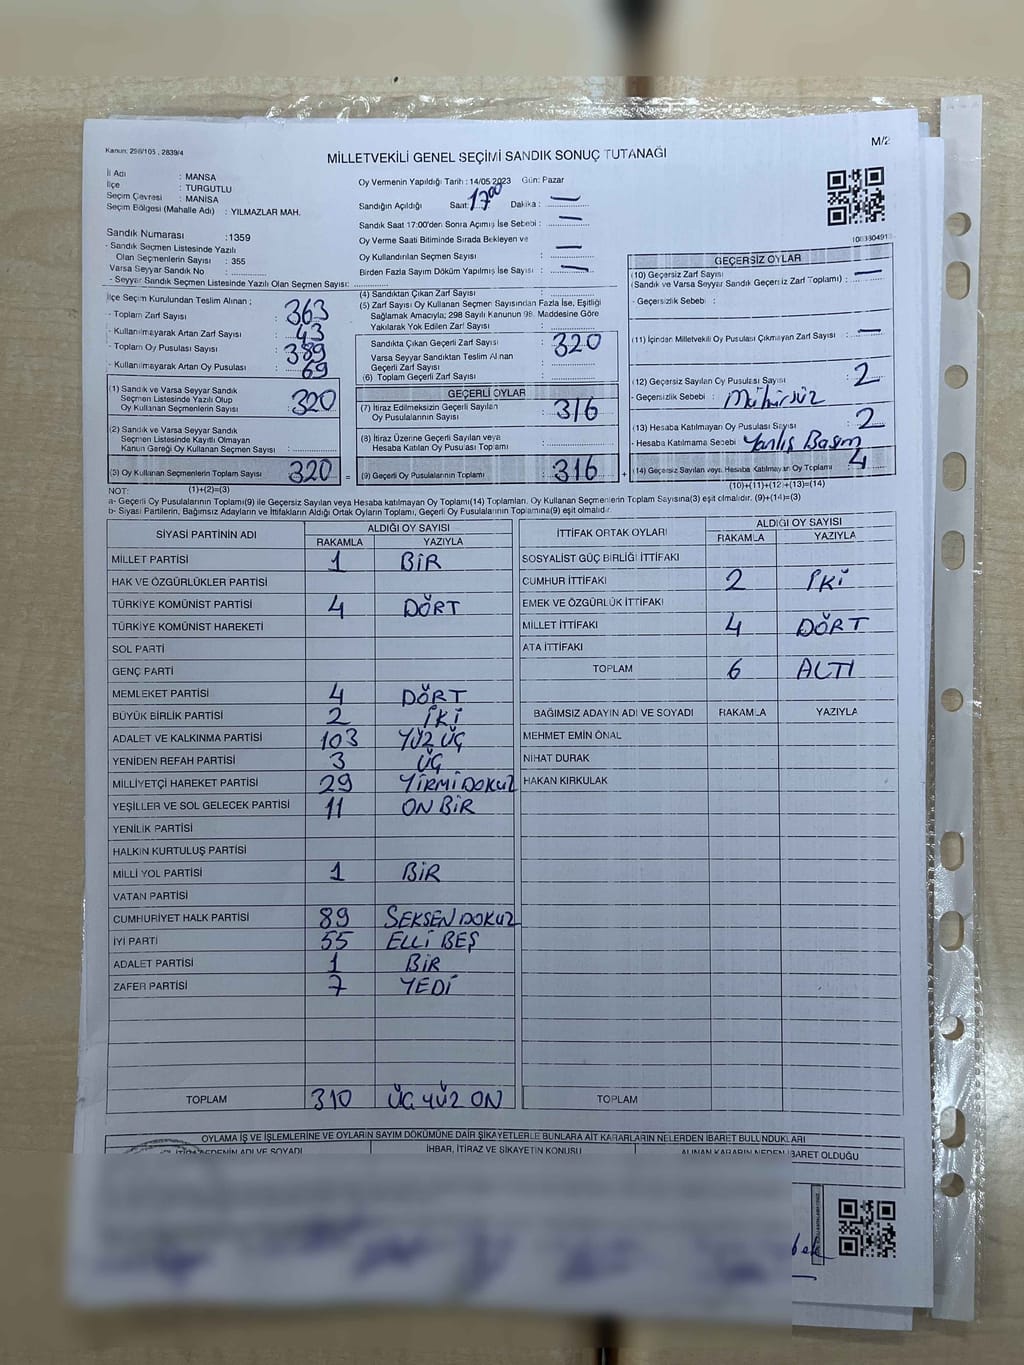 Kanun: 298/105 , 2839/4
M/2
MİLLETVEKİLİ GENEL SEÇİMİ SANDIK SONUÇ TUTANAĞI
İl Adı : MANSA
İlçe : TURGUTLU
Seçim Çevresi : MANİSA
Seçim Bölgesi (Mahalle Adı) : YILMAZLAR MAH.
Sandık Numarası :1359
- Sandık Seçmen Listesinde Yazılı
Olan Seçmenlerin Sayısı : 355
Varsa Seyyar Sandık No :
- Seyyar Sandık Seçmen Listesinde Yazılı Olan Seçmen Sayısı:
Oy Vermenin Yapıldığı Tarih : 14/05/2023 Gün: Pazar
Sandığın Açıldığı Saat: 17⁰⁰ Dakika : —
Sandık Saat 17:00'den Sonra Açılmış İse Sebebi : —
Oy Verme Saati Bitiminde Sırada Bekleyen ve
Oy Kullandırılan Seçmen Sayısı : —
Birden Fazla Sayım Döküm Yapılmış İse Sayısı : —
İlçe Seçim Kurulundan Teslim Alınan ;
- Toplam Zarf Sayısı : 363
- Kullanılmayarak Artan Zarf Sayısı : 43
- Toplam Oy Pusulası Sayısı : 389
- Kullanılmayarak Artan Oy Pusulası : 69
(1) Sandık ve Varsa Seyyar Sandık
Seçmen Listesinde Yazılı Olup
Oy Kullanan Seçmenlerin Sayısı : 320
(2) Sandık ve Varsa Seyyar Sandık
Seçmen Listesinde Kayıtlı Olmayan
Kanun Gereği Oy Kullanan Seçmen Sayısı :
(3) Oy Kullanan Seçmenlerin Toplam Sayısı : 320 =
(1)+(2)=(3)
(4) Sandıktan Çıkan Zarf Sayısı :
(5) Zarf Sayısı Oy Kullanan Seçmen Sayısından Fazla İse, Eşitliği
Sağlamak Amacıyla; 298 Sayılı Kanunun 98. Maddesine Göre
Yakılarak Yok Edilen Zarf Sayısı :
Sandıkta Çıkan Geçerli Zarf Sayısı : 320
Varsa Seyyar Sandıktan Teslim Alınan
Geçerli Zarf Sayısı :
(6) Toplam Geçerli Zarf Sayısı :
GEÇERLİ OYLAR
(7) İtiraz Edilmeksizin Geçerli Sayılan
Oy Pusulalarının Sayısı : 316
(8) İtiraz Üzerine Geçerli Sayılan veya
Hesaba Katılan Oy Pusulası Toplamı :
(9) Geçerli Oy Pusulalarının Toplamı : 316 +
GEÇERSİZ OYLAR
(10) Geçersiz Zarf Sayısı
(Sandık ve Varsa Seyyar Sandık Geçersiz Zarf Toplamı) : —
- Geçersizlik Sebebi :
(11) İçinden Milletvekili Oy Pusulası Çıkmayan Zarf Sayısı : —
(12) Geçersiz Sayılan Oy Pusulası Sayısı : 2
- Geçersizlik Sebebi : Mühürsüz
(13) Hesaba Katılmayan Oy Pusulası Sayısı : 2
- Hesaba Katılmama Sebebi : Yanlış Basım
(14) Geçersiz Sayılan veya Hesaba Katılmayan Oy Toplamı : 4
(10)+(11)+(12)+(13)=(14)
NOT:
a- Geçerli Oy Pusulalarının Toplamı(9) ile Geçersiz Sayılan veya Hesaba katılmayan Oy Toplamı(14) Toplamları, Oy Kullanan Seçmenlerin Toplam Sayısına(3) eşit olmalıdır. (9)+(14)=(3)
b- Siyasi Partilerin, Bağımsız Adayların ve İttifakların Aldığı Ortak Oyların Toplamı, Geçerli Oy Pusulalarının Toplamına(9) eşit olmalıdır.
SİYASİ PARTİNİN ADI ALDIĞI OY SAYISI
RAKAMLA YAZIYLA
MİLLET PARTİSİ 1 BİR
HAK VE ÖZGÜRLÜKLER PARTİSİ
TÜRKİYE KOMÜNİST PARTİSİ 4 DÖRT
TÜRKİYE KOMÜNİST HAREKETİ
SOL PARTİ
GENÇ PARTİ
MEMLEKET PARTİSİ 4 DÖRT
BÜYÜK BİRLİK PARTİSİ 2 İKİ
ADALET VE KALKINMA PARTİSİ 103 YÜZ ÜÇ
YENİDEN REFAH PARTİSİ 3 ÜÇ
MİLLİYETÇİ HAREKET PARTİSİ 29 YİRMİ DOKUZ
YEŞİLLER VE SOL GELECEK PARTİSİ 11 ON BİR
YENİLİK PARTİSİ
HALKIN KURTULUŞ PARTİSİ
MİLLİ YOL PARTİSİ 1 BİR
VATAN PARTİSİ
CUMHURİYET HALK PARTİSİ 89 SEKSEN DOKUZ
İYİ PARTİ 55 ELLİ BEŞ
ADALET PARTİSİ 1 BİR
ZAFER PARTİSİ 7 YEDİ
TOPLAM 310 ÜÇ YÜZ ON
İTTİFAK ORTAK OYLARI ALDIĞI OY SAYISI
RAKAMLA YAZIYLA
SOSYALİST GÜÇ BİRLİĞİ İTTİFAKI
CUMHUR İTTİFAKI 2 İKİ
EMEK VE ÖZGÜRLÜK İTTİFAKI
MİLLET İTTİFAKI 4 DÖRT
ATA İTTİFAKI
TOPLAM 6 ALTI
BAĞIMSIZ ADAYIN ADI VE SOYADI RAKAMLA YAZIYLA
MEHMET EMİN ÖNAL
NİHAT DURAK
HAKAN KIRKULAK
TOPLAM
OYLAMA İŞ VE İŞLEMLERİNE VE OYLARIN SAYIM DÖKÜMÜNE DAİR ŞİKAYETLERLE BUNLARA AİT KARARLARIN NELERDEN İBARET BULUNDUKLARI
İTİRAZ EDENİN ADI VE SOYADI İHBAR, İTİRAZ VE ŞİKAYETİN KONUSU ALINAN KARARIN NEDEN İBARET OLDUĞU